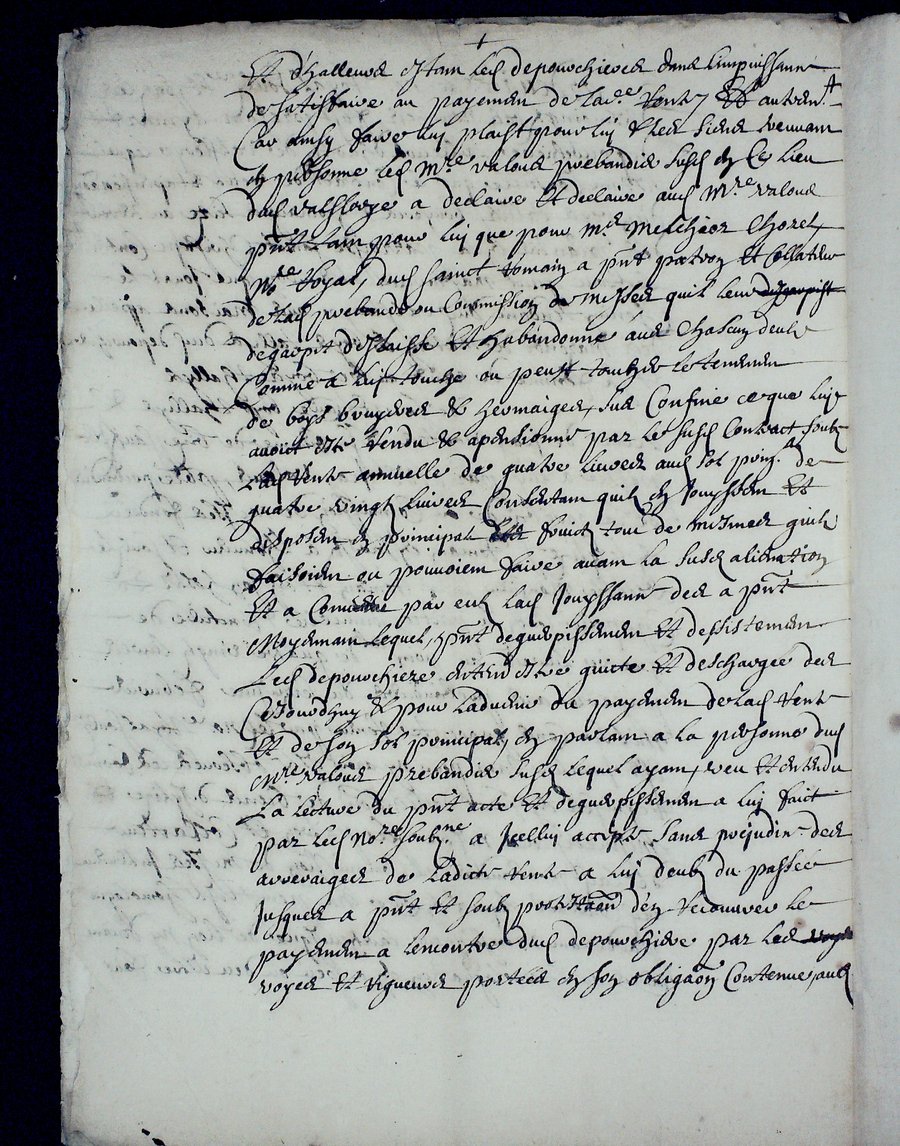 Et d'halleurs estan led depourchierer dans limpuissance
de satisfaire au payement de lad.e rente Et autren.t
Car ainsy faire luy plaist pour luy & les siens venuant
en personne led M.re valous prebandier susd en Ce lieu
dud valsloige a declaire Et declaire aud M.re valous
pñt tant pour luy que pour M.r Melchior Chorel
No.re Royal, dud sainct Romain a pñt patron Et Collateur
de lad prebande ou Commission de messes quil leur
deguerpit deslaisse Et habandonne aux Chascun deulx
Comme a luy touche ou peust toucher le tenement
de boys bruyeres & hermaiges, sus Confine ce que luy
avoict este vendu & apensionne par le susd Contract soubz
Lad rente annuelle de quatre livres aud sol prin.l de
quatre vingtz livres Consentam quilz en jouyssent Et
disposent en principal Et fruictz tout de mesmes quilz
faisoient ou pouvoient faire avant la susd alienation
Et a Comance par eulx lad jouyssance des a pñt
Moyenant lequel, pñt deguerpissement Et desistement
Led depourchiere entend estre quicte Et deschargee des
Cejourdhuy & pour ladvenir du payement de lad rente
Et de son sol principal, en parlant a la personne dud
M.re valous prebandier susd lequel ayant, veu Et entendu
La lecture du pñt acte Et deguerpissement a luy faict
par led No.re soubz.ne a Icelluy accepte sans prejudice des
arreraiges de ladicte rente a luy deubz du passee
jusques a pñt Et soubz protestaon d'en recouvrer le
payement a lencontre dud depourchiere par les
voyes Et rigueurs portees en son obligaon Contenue, aud